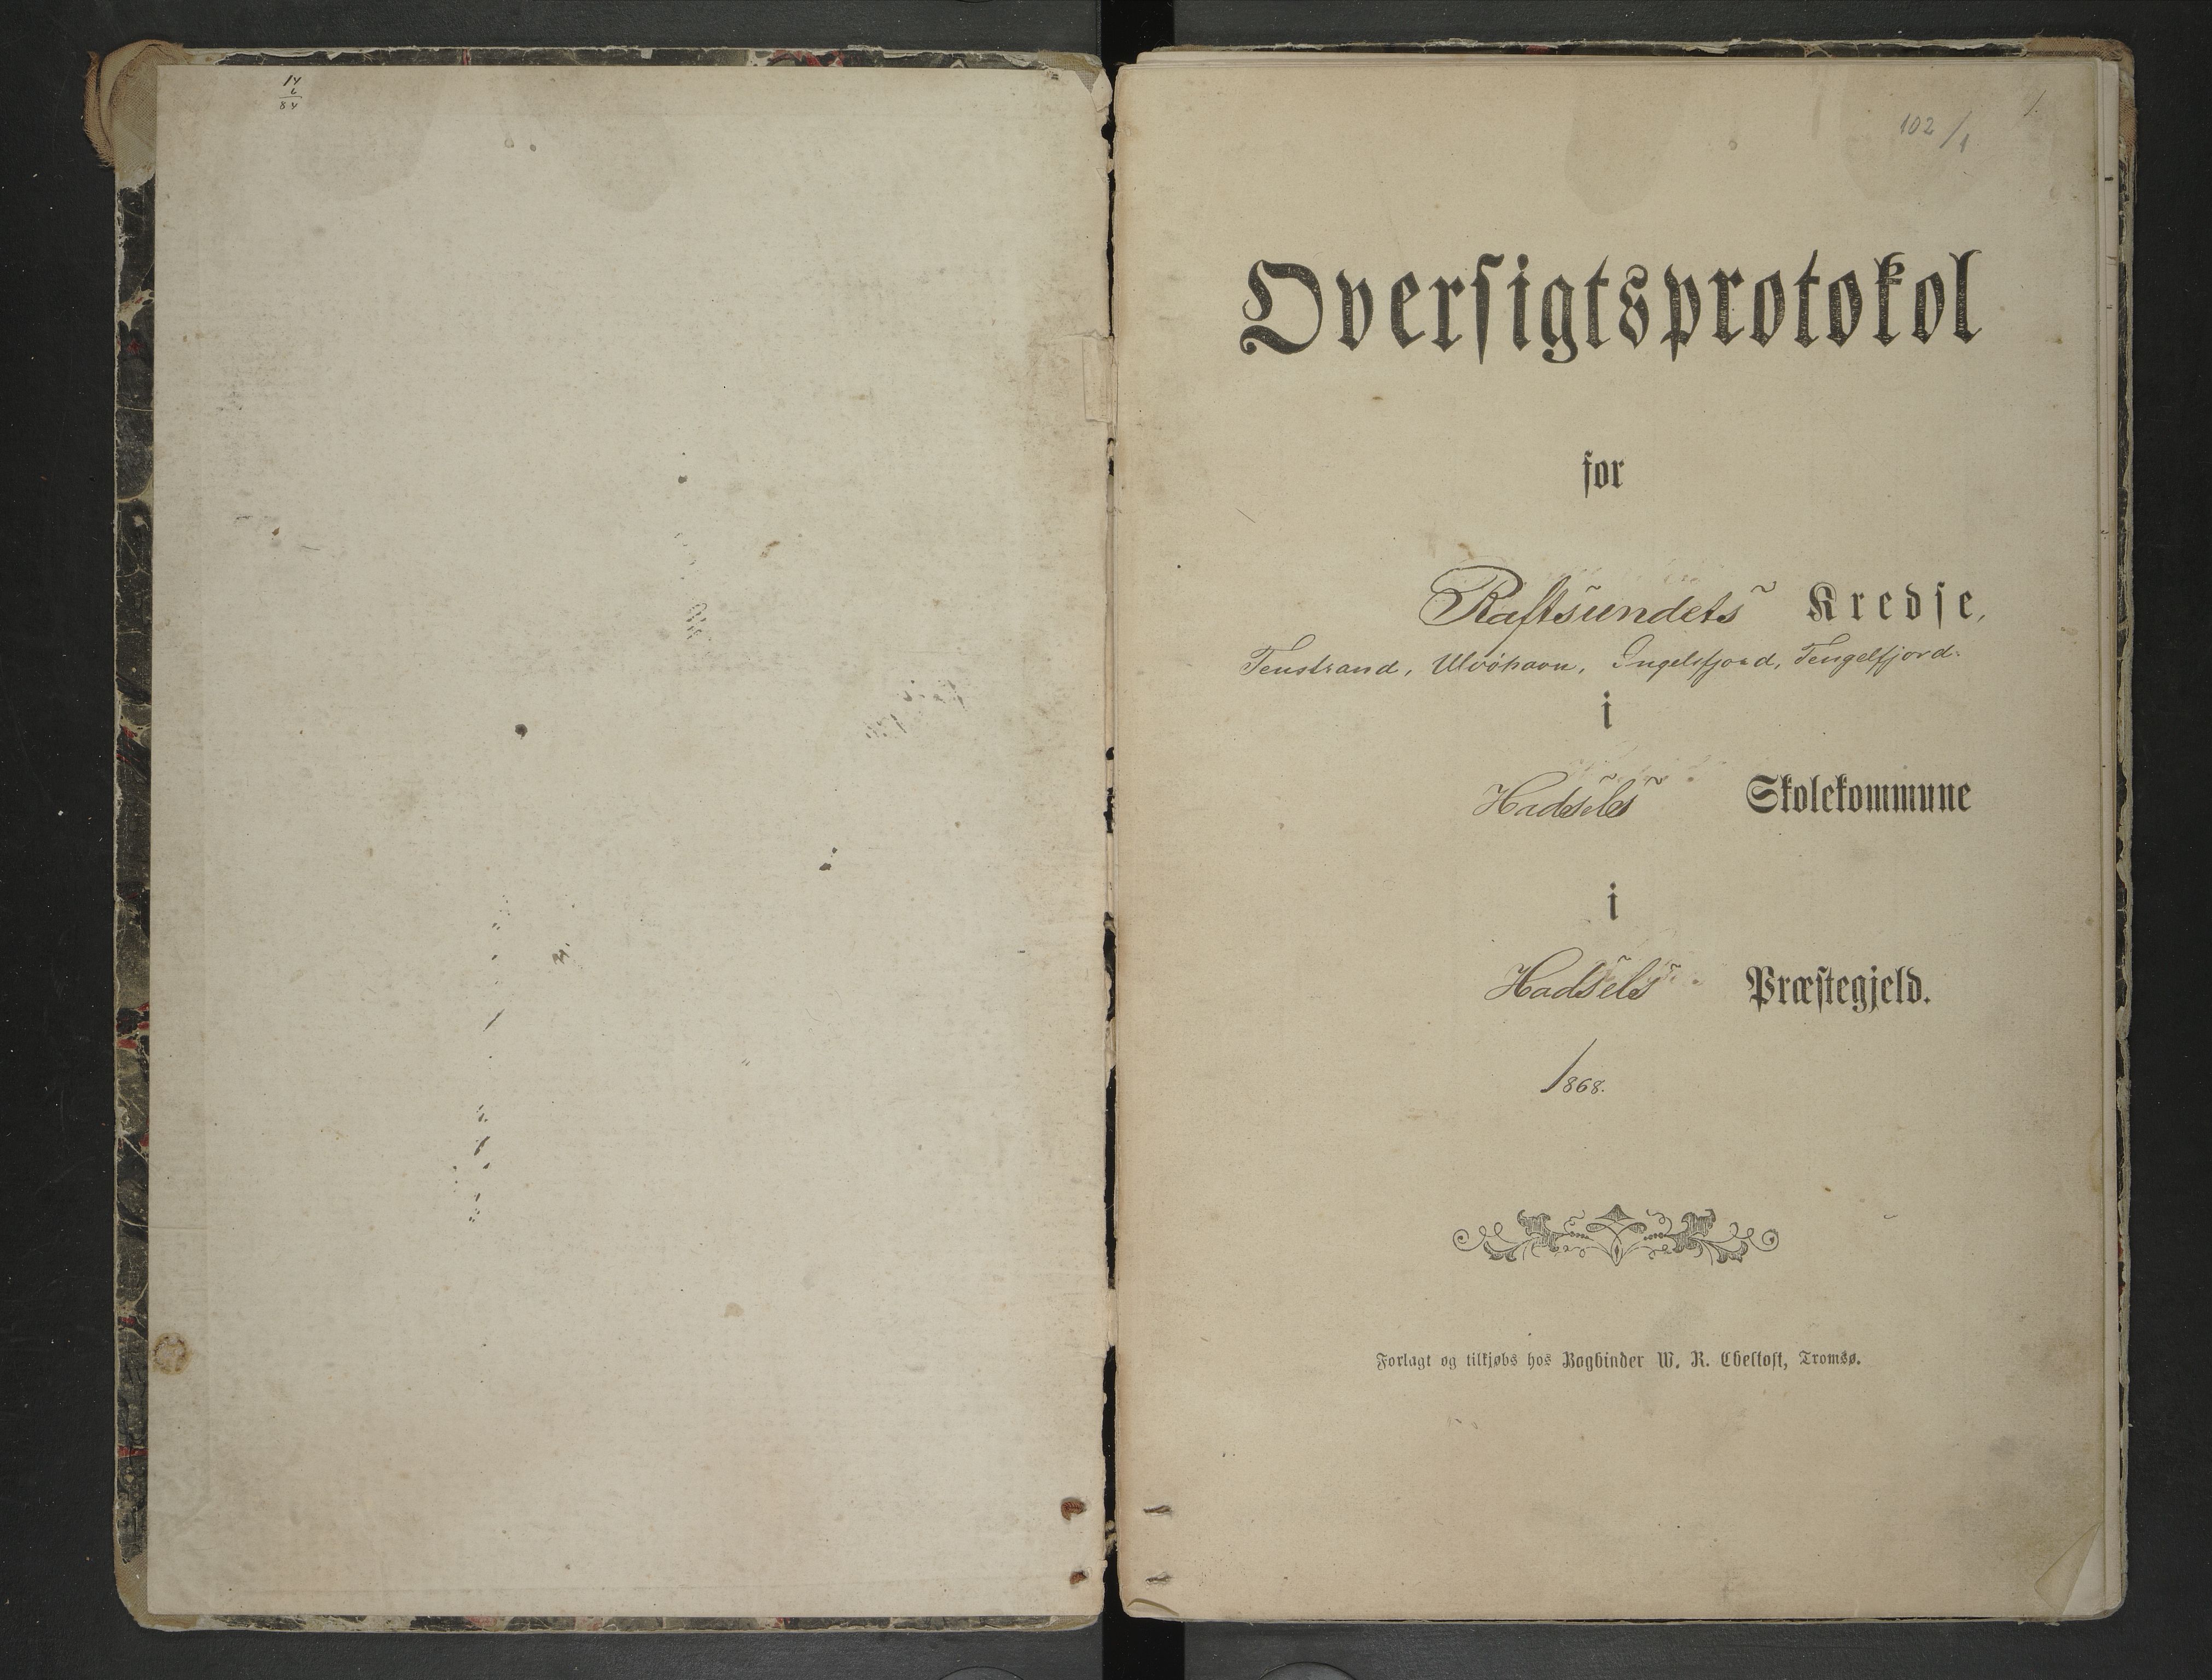 14
6
84
1.
102/1
Oversigtsprotokol
for
Raftsundets Kredse,
Tenstrand, Ulvöhavn, Ingelsfjord, Tengelfjord.
i
Hadsels Skolekommune
i
Hadsels Præstegjeld.
1868.
Forlagt og tilkjøbs hos Bogbinder W. R. Ebeltoft, Tromsø.